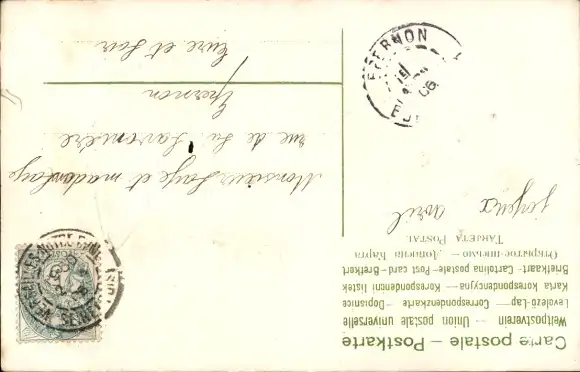 Carte postale — Postkarte
Weltpostverein — Union postale universelle
Levelező-Lap — Correspondenzkarte — Dopisnice
Karta korespondencyjna — Korespondenční lístek
Briefkaart - Cartolina postale - Post card - Brefkort
Открытое письмо — Дописна Карта
TARJETA POSTAL
joyeux avril
Monsieur et madame
rue de la Savonnière
Epernon
Eure et Loir
EPERNON